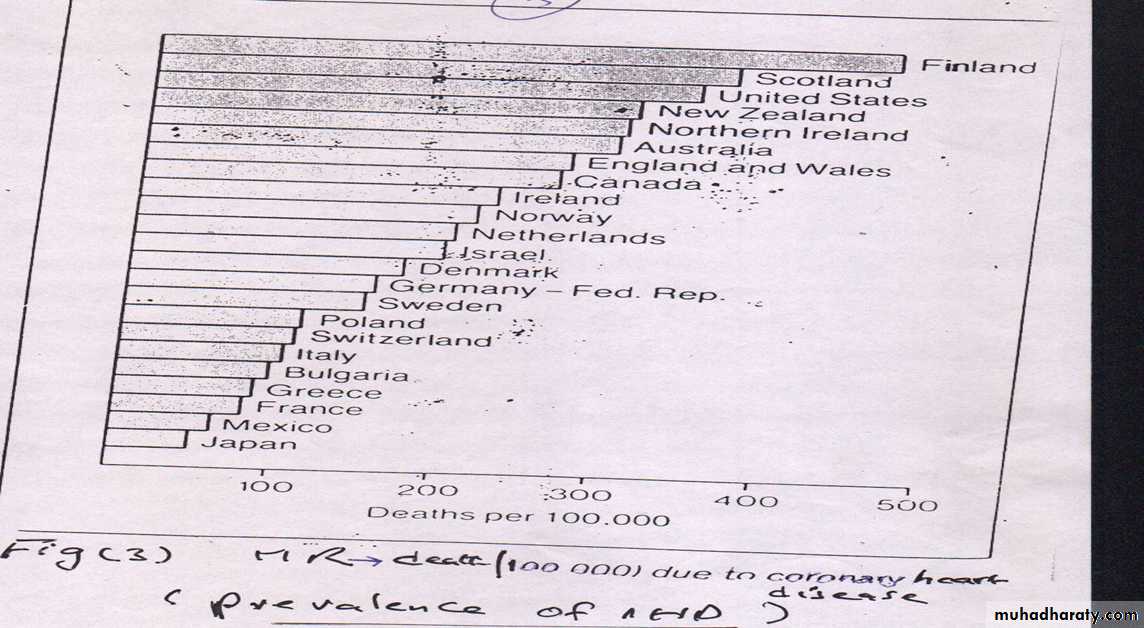 Finland
Scotland
United States
New Zealand
Northern Ireland
Australia
England and Wales
Canada
Ireland
Norway
Netherlands
Israel
Denmark
Germany – Fed. Rep.
Sweden
Poland
Switzerland
Italy
Bulgaria
Greece
France
Mexico
Japan
100 200 300 400 500
Deaths per 100.000
Fig (3) MR → death/(100 000) due to coronary heart
disease
(prevalence of IHD)
muhadharaty.com